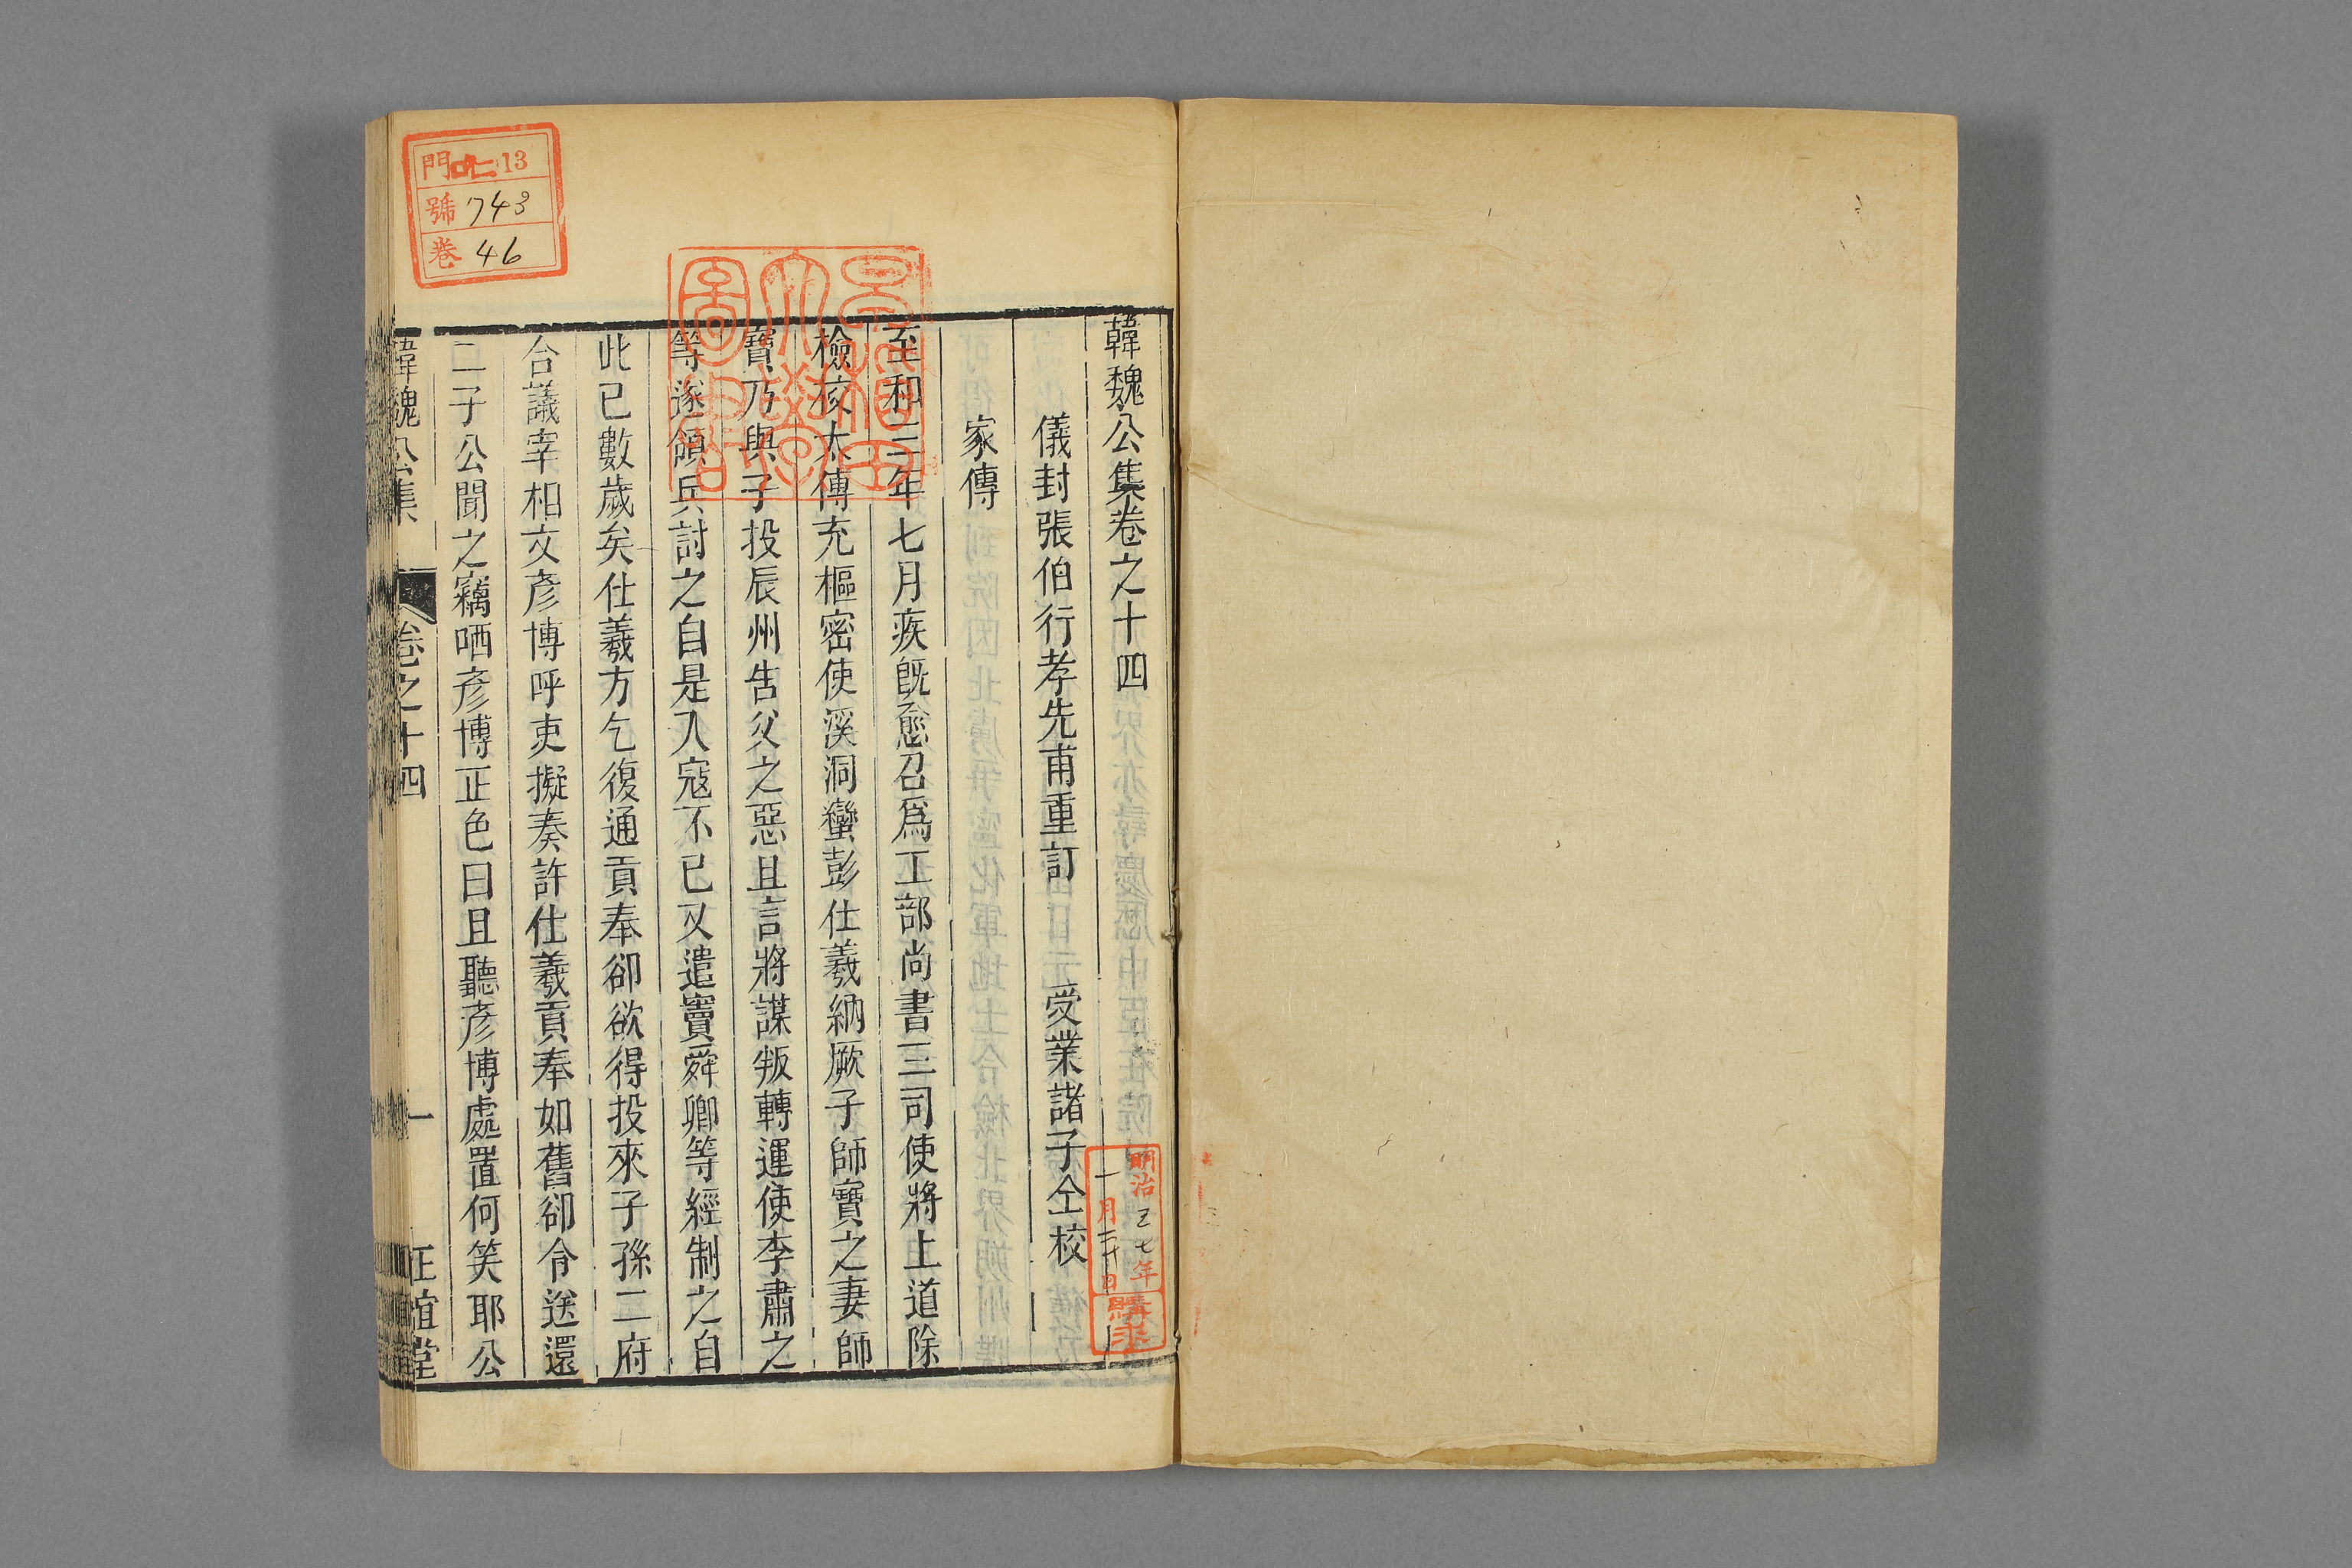 韓魏公集卷之十四
儀封張伯行孝先甫重訂 受業諸子仝校
家傳
至和三年七月疾旣愈召爲工部尚書三司使將上道除
檢校太傅充樞密使溪洞蠻彭仕羲納厥子師寶之妻師
寶乃與子投辰州告父之惡且言將謀叛轉運使李肅之
等遂領兵討之自是入寇不已又遣竇舜卿等經制之自
此已數歲矣仕羲方乞復通貢奉卻欲得投來子孫二府
合議宰相文彥博呼吏擬奏許仕羲貢奉如舊卻令送還
二子公聞之竊哂彥博正色曰且聽彥博處置何笑耶公
韓魏公集 卷之十四 一 正誼堂
門 13
號 743
卷 46
明治三七年
一月二十日
購求